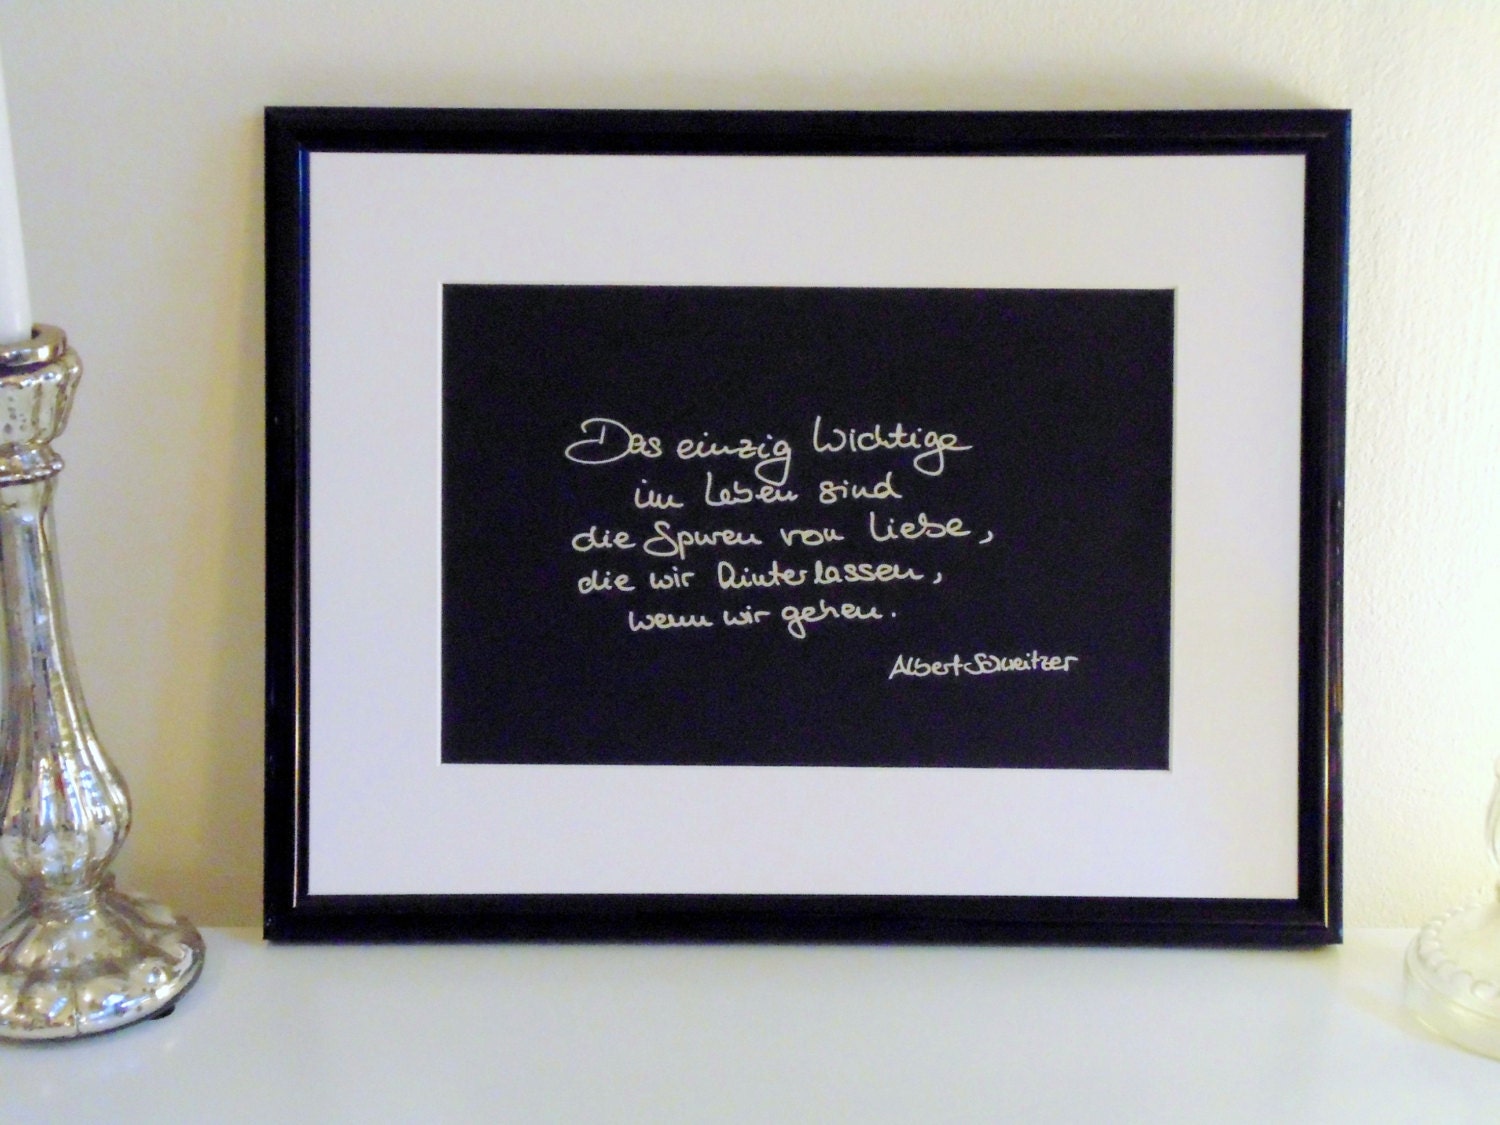 Das einzig Wichtige
im Leben sind
die Spuren von Liebe,
die wir hinterlassen,
wenn wir gehen.
Albert Schweitzer